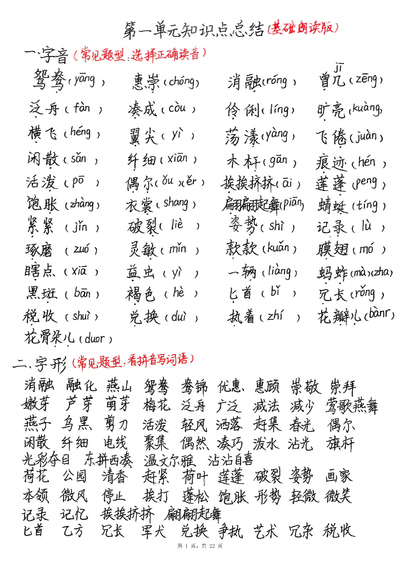 第一单元知识点总结(基础朗读版)
一.字音(常见题型:选择正确读音)
鸳鸯(yāng) 惠崇(chóng) 消融(róng) 曾几(zēng) jī
泛舟(fàn) 凑成(còu) 伶俐(líng) 旷亮(kuàng)
横飞(héng) 翼尖(yì) 荡漾(yàng) 飞倦(juàn)
闲散(sǎn) 纤细(xiān) 木杆(gān) 痕迹(hén)
活泼(pō) 偶尔(ǒu)(ěr) 挨挨挤挤(āi) 蓬蓬(peng)
饱胀(zhàng) 衣裳(shang) 翩翩起舞(piān) 蜻蜓(tíng)
紧(jǐn) 破裂(liè) 姿势(shì) 记录(lù)
琢磨(zuó) 灵敏(mǐn) 款款(kuǎn) 膜翅(mó)
瞎点(xiā) 益虫(yì) 一辆(liàng) 蚂蚱(mà)(zha)
黑斑(bān) 褐色(hè) 匕首(bǐ) 冗长(rǒng)
税收(shuì) 兑换(duì) 执着(zhí) 花瓣儿(bànr)
花骨朵儿(duor)
二.字形(常见题型:看拼音写词语)
消融 融化 燕山 鸳鸯 鸯锦 优惠 惠顾 崇敬 崇拜
嫩芽 芦芽 萌芽 梅花 泛舟 广泛 减法 减少 莺歌燕舞
燕子 乌黑 剪刀 活泼 轻风 洒落 赶集 春光 偶尔
闲散 纤细 电线 聚集 偶然 凑巧 泼水 沾光 旗杆
光彩夺目 东拼西凑 温文尔雅 沾沾自喜
荷花 公园 清香 赶紧 荷叶 莲蓬 破裂 姿势 画家
本领 微风 停止 挨打 蓬松 饱胀 形势 轻微 微笑
记录 记忆 挨挨挤挤 翩翩起舞
匕首 乙方 冗长 军犬 兑换 争执 艺术 冗杂 税收
第 1 页,共 22 页